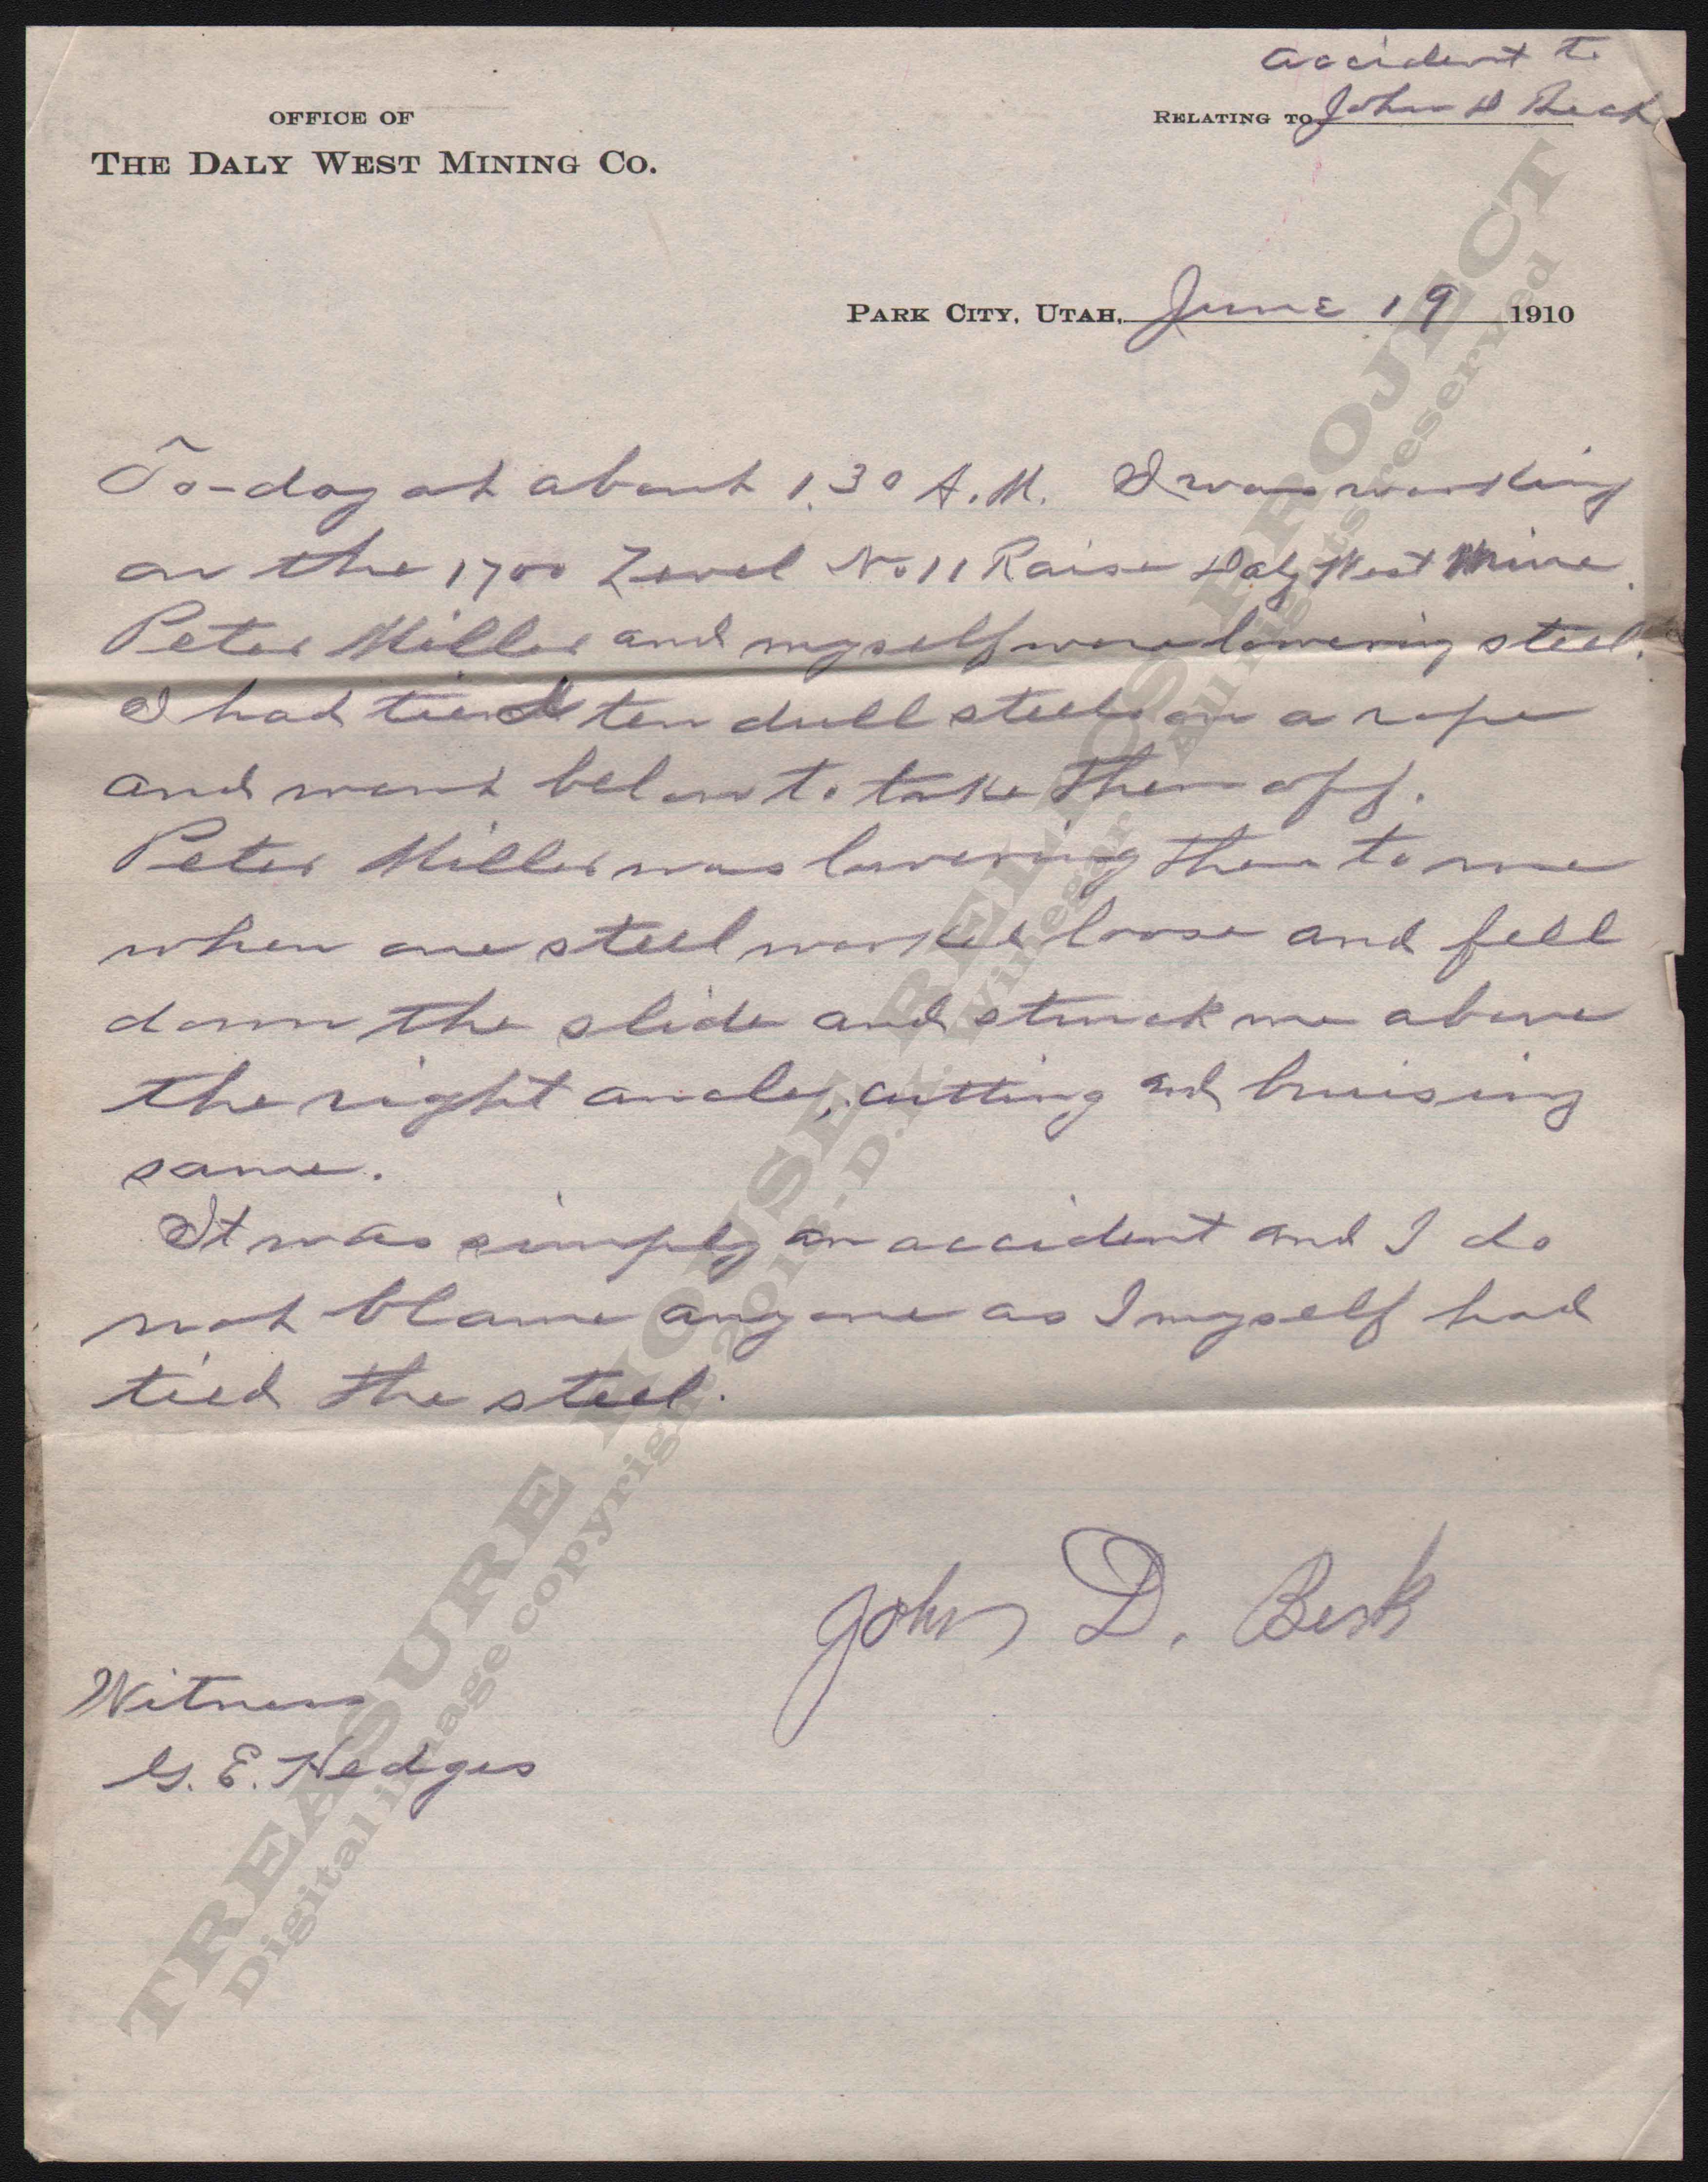 accident to
OFFICE OF
RELATING TO John D Beck
THE DALY WEST MINING CO.
PARK CITY, UTAH, June 19 1910
To-day at about 1.30 A.M. I was working
on the 1700 Level No 11 Raise Daly West Mine.
Peter Miller and myself were lowering steel.
I had tied ten dull steels on a rope
and went below to take them off.
Peter Miller was lowering them to me
when one steel worked loose and fell
down the slide and struck me above
the right ancle, cutting and bruising
same.
It was simply an accident and I do
not blame anyone as I myself had
tied the steel.
John D. Beck
Witness
G. E. Hedges
TREASURE HOUSE RELICS PROJECT
Digital image copyright 2013 - D.K. Vinegar All rights reserved